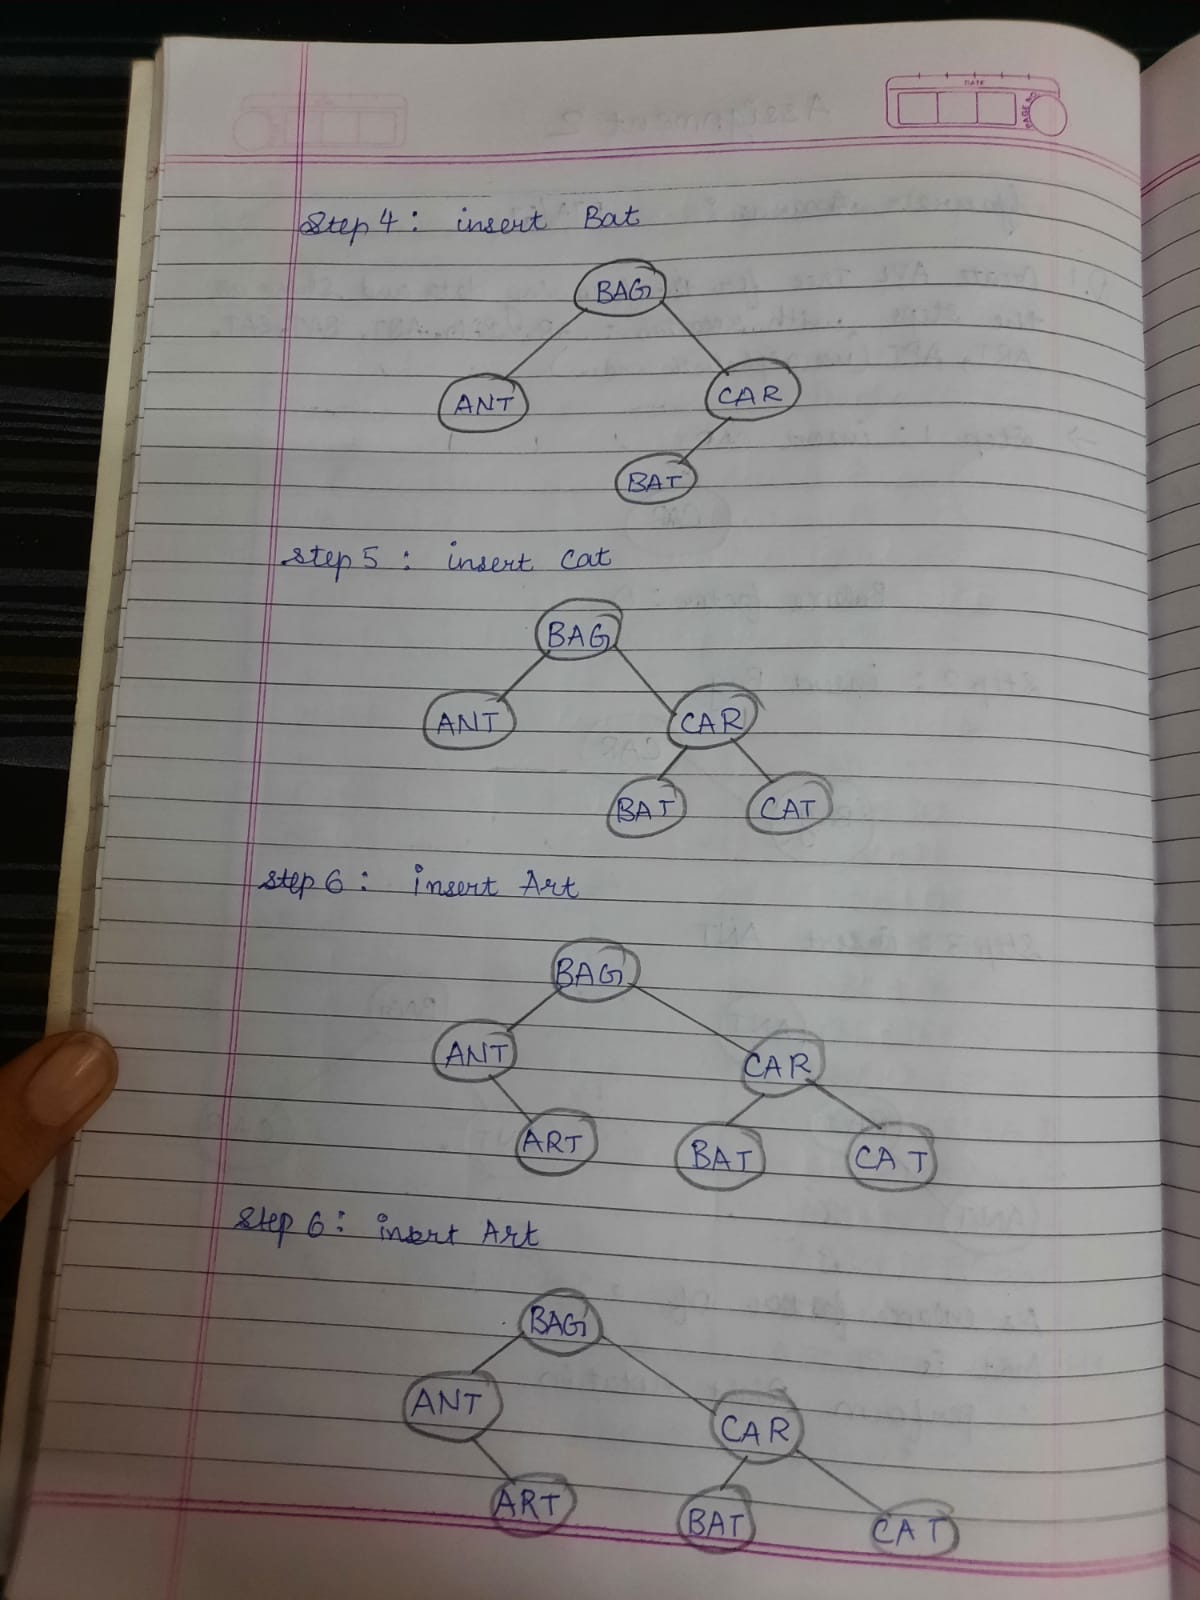 DATE
PAGE NO.
Step 4 : insert Bat
BAG
ANT CAR
BAT
Step 5 : insert Cat
BAG
ANT CAR
BAT CAT
Step 6 : insert Art
BAG
ANT CAR
ART BAT CAT
Step 6 : insert Art
BAG
ANT CAR
ART BAT CAT